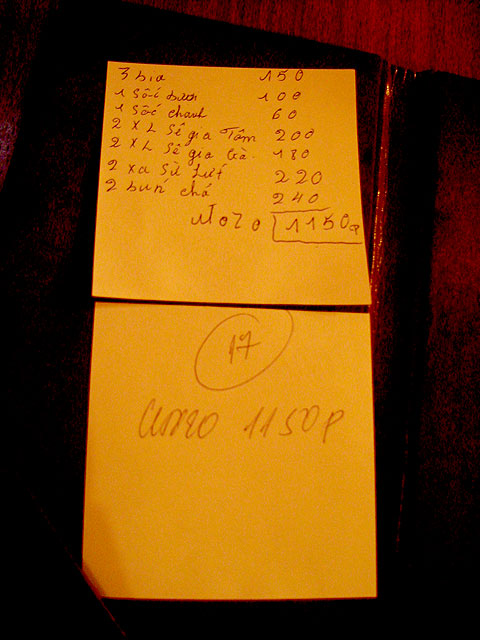 3 bia 150
1 Sốc bưởi 100
1 Sốc chanh 60
2 X L Sê gia Tôm 200
2 X L Sê gia Gà 180
2 xa Sừ Lưt 220
2 bún chá 240
Итого 1150р
17
итого 1150р